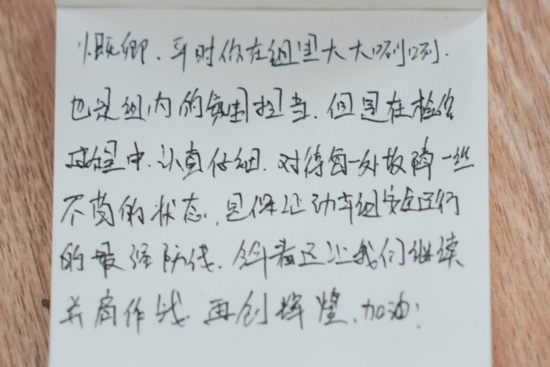 慨卿、平时你在组里大大咧咧.
也是组内的氛围担当.但是在检修
过程中.认真仔细.对待每一处故障一丝
不苟的状态.是保证动车组安全运行
的最终防线.新春运让我们继续
并肩作战.再创辉煌、加油!